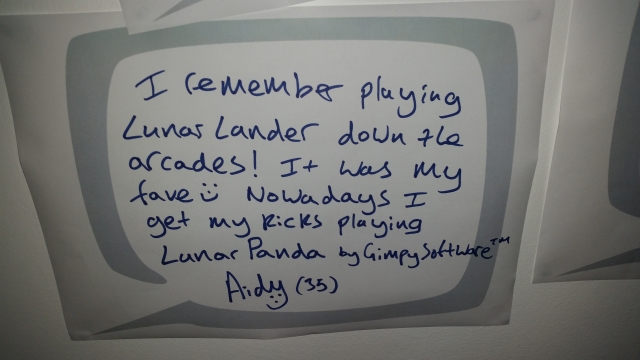 I remember playing
Lunar Lander down the
arcades! It was my
fave Nowadays I
get my kicks playing
Lunar Panda by GimpySoftware™
Aidy (35)